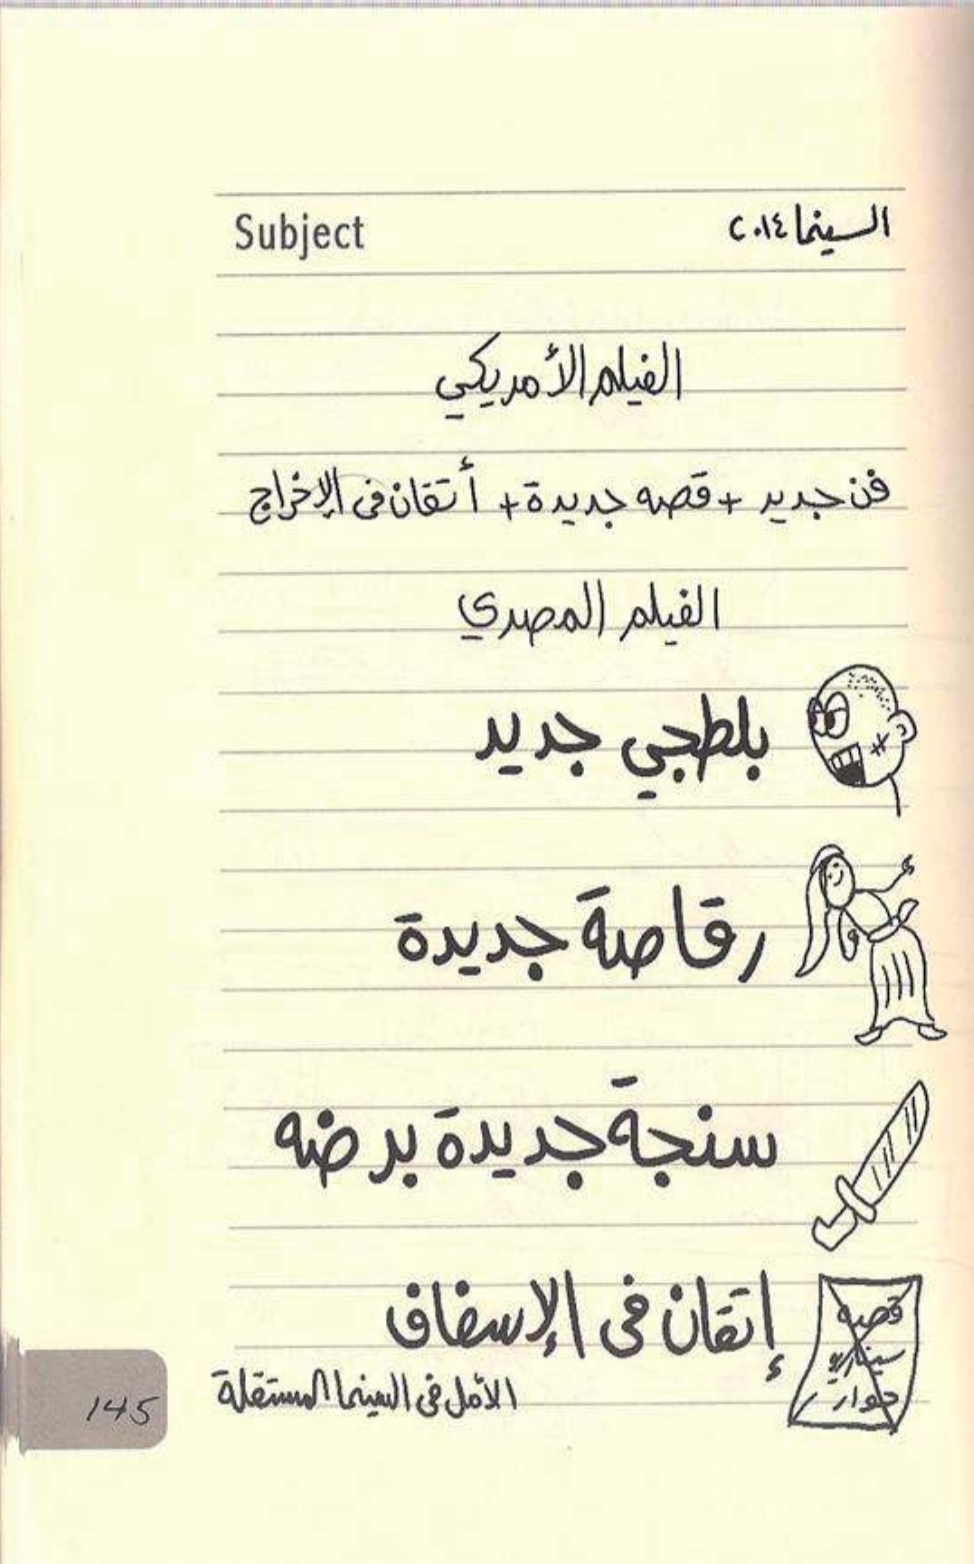 Subject السينما ٢٠١٤
الفيلم الأمريكي
فن جديد + قصه جديدة + أتقان في الإخراج
الفيلم المصري
بلطجي جديد
رقاصة جديدة
سنجة جديدة برضه
إتقان في الإسفاف
قصه
سيناريو
حوار
الأمل في السينما المستقلة
145